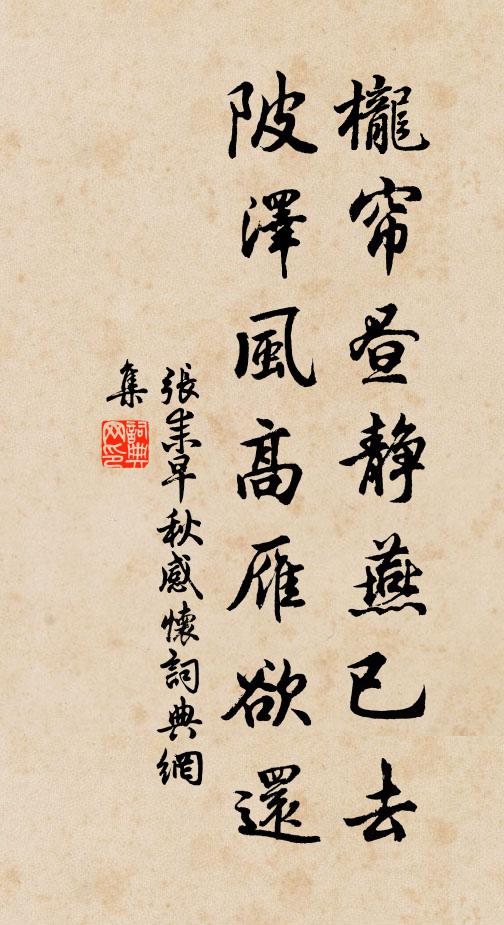 櫳帘昼静燕已去
陂澤風高雁欲還
張耒早秋感懷詞典網
集
詞典
网印